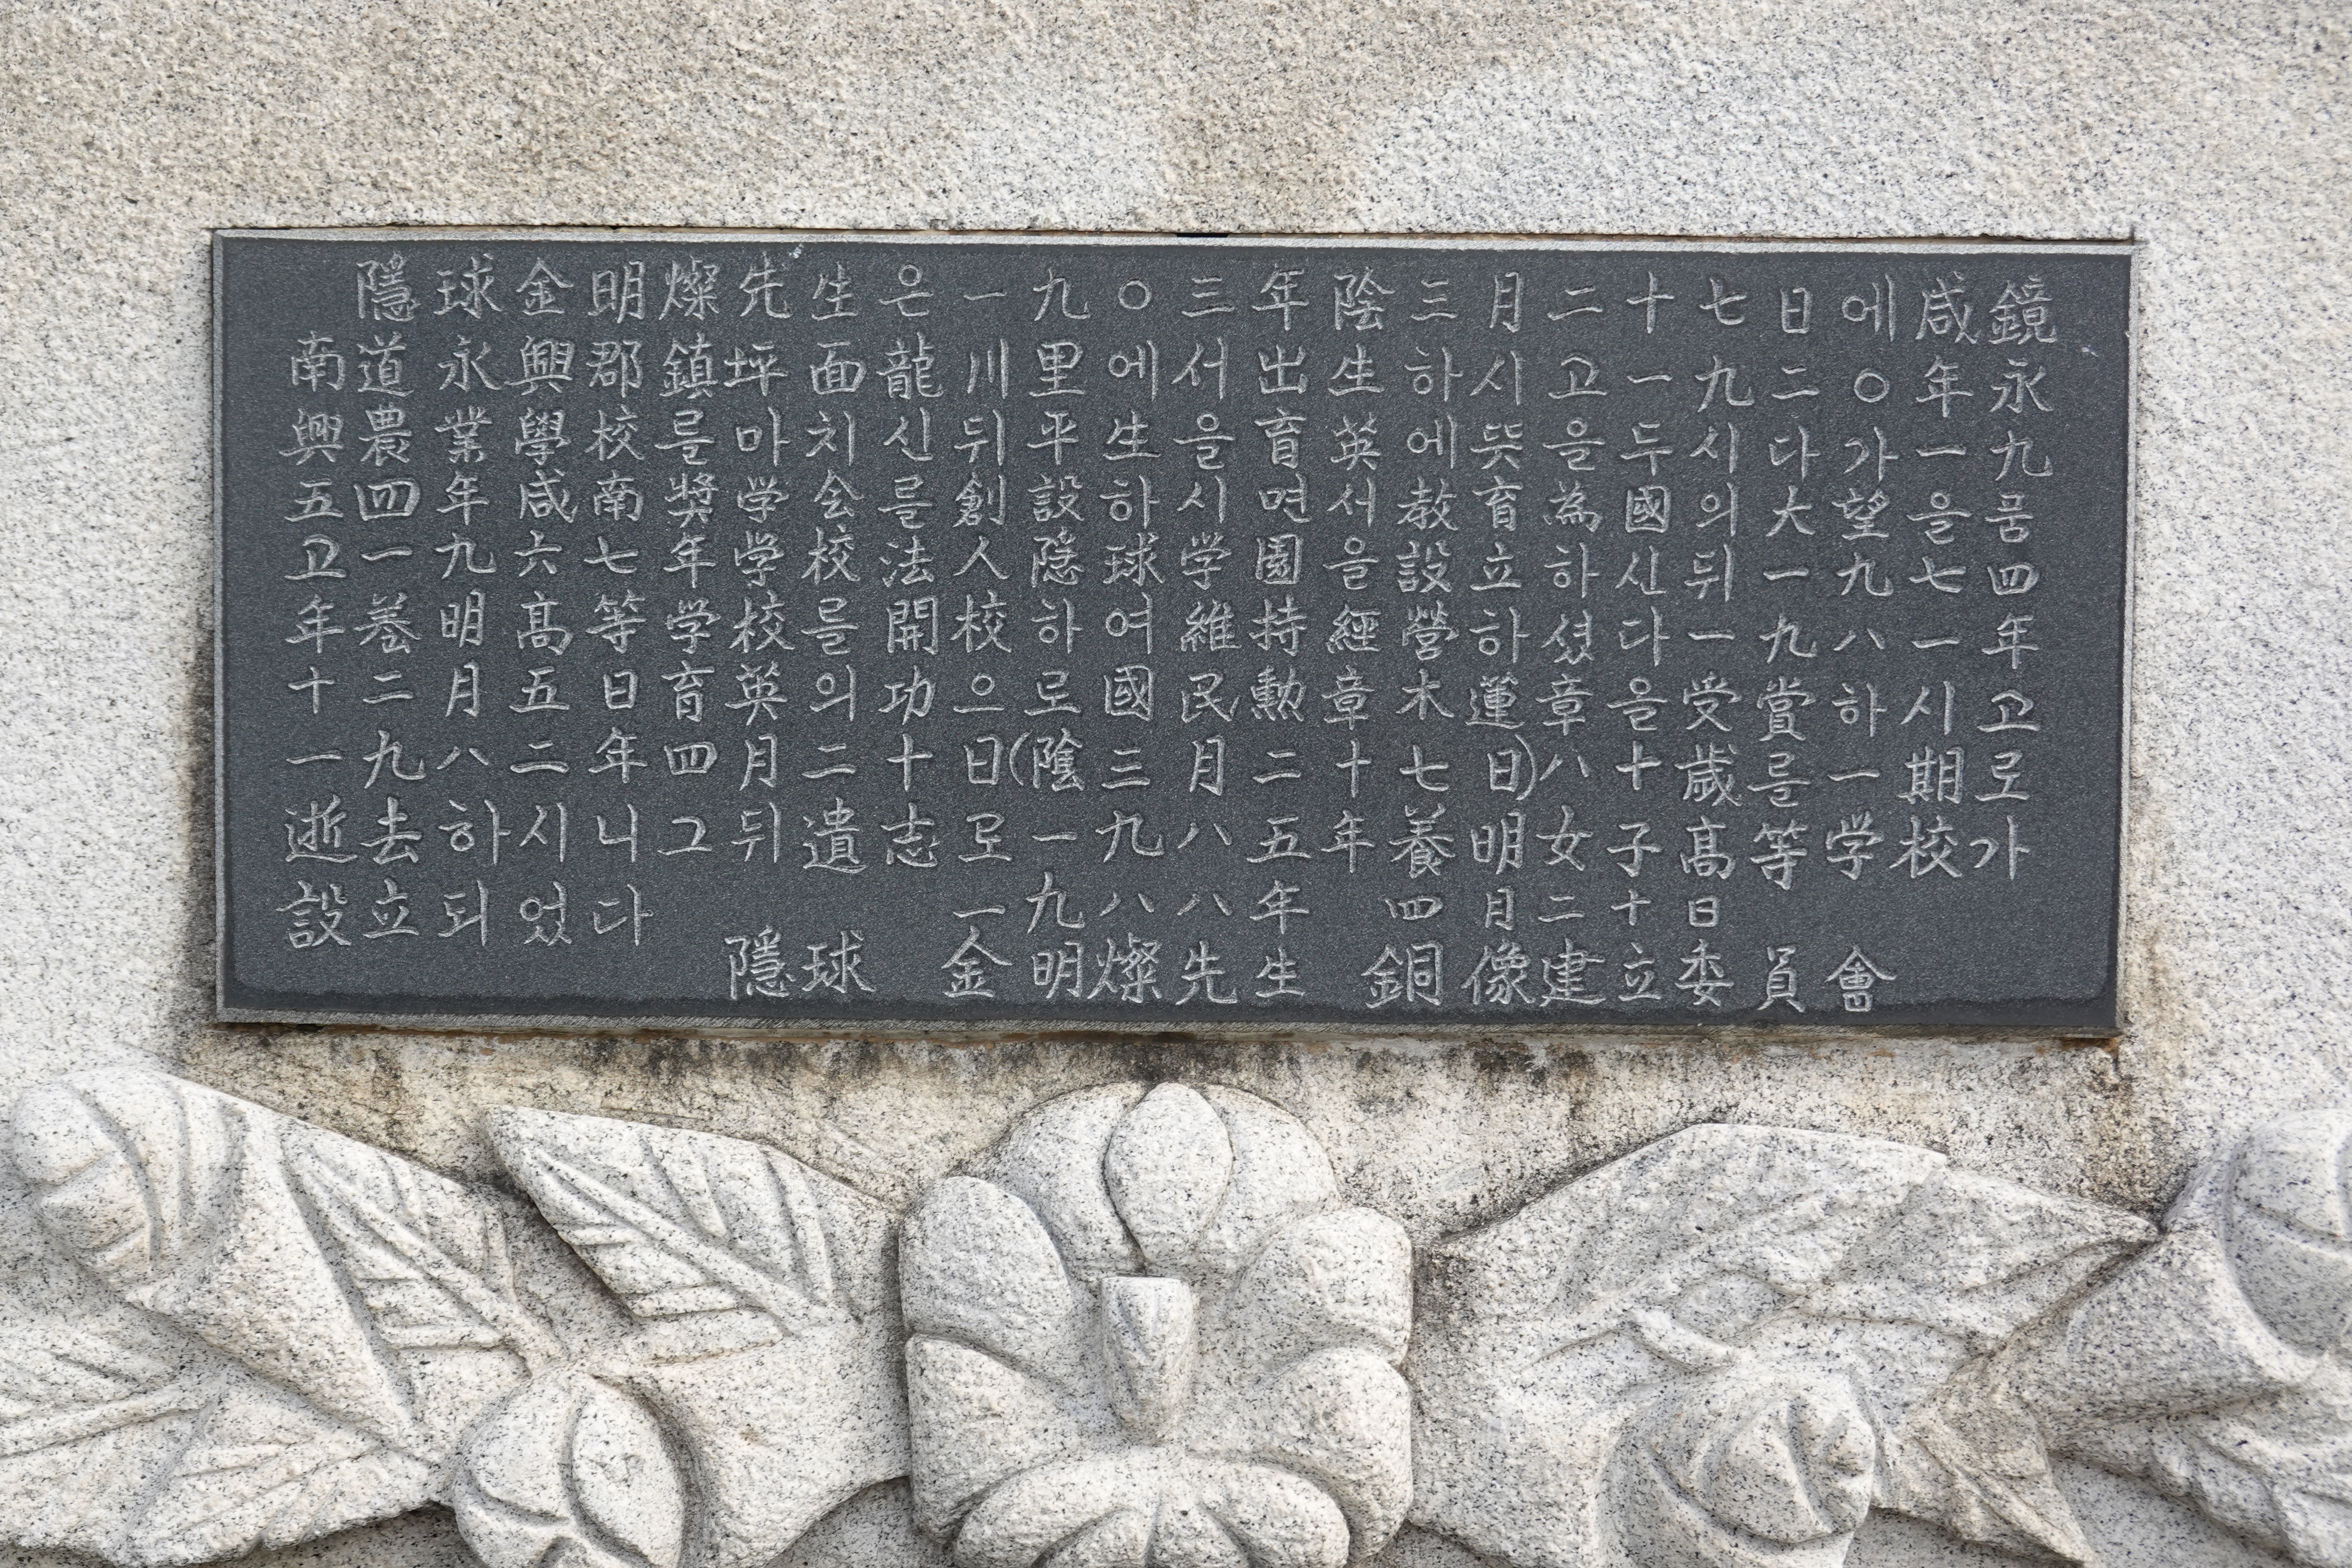 隱球金明燦先生은一九〇三年陰三月二十七日에咸鏡
南道永興郡鎭坪面龍川里에서出生하시고一九二〇年永
興農業學校를마치신뒤平生을育英에뜻을두시다가一九
五四年咸南獎学会를創設하시면서教育為國의大望을품
고一九六七年学校法人隱球学園을設立하신뒤一九七四
年養明高等学校를開校하여維持經營하셨다一九八一年
十二月五日育英의功으로國民勳章木蓮章을受賞하시고
一九八二年四月二十日(陰三月二十七日)八十歲를一期로
逝去하시니그뒤遺志로一九八五年養明女子高等学校가
設立되었다 一九八八年四月二十日
隱球 金明燦先生 銅像建立委員會